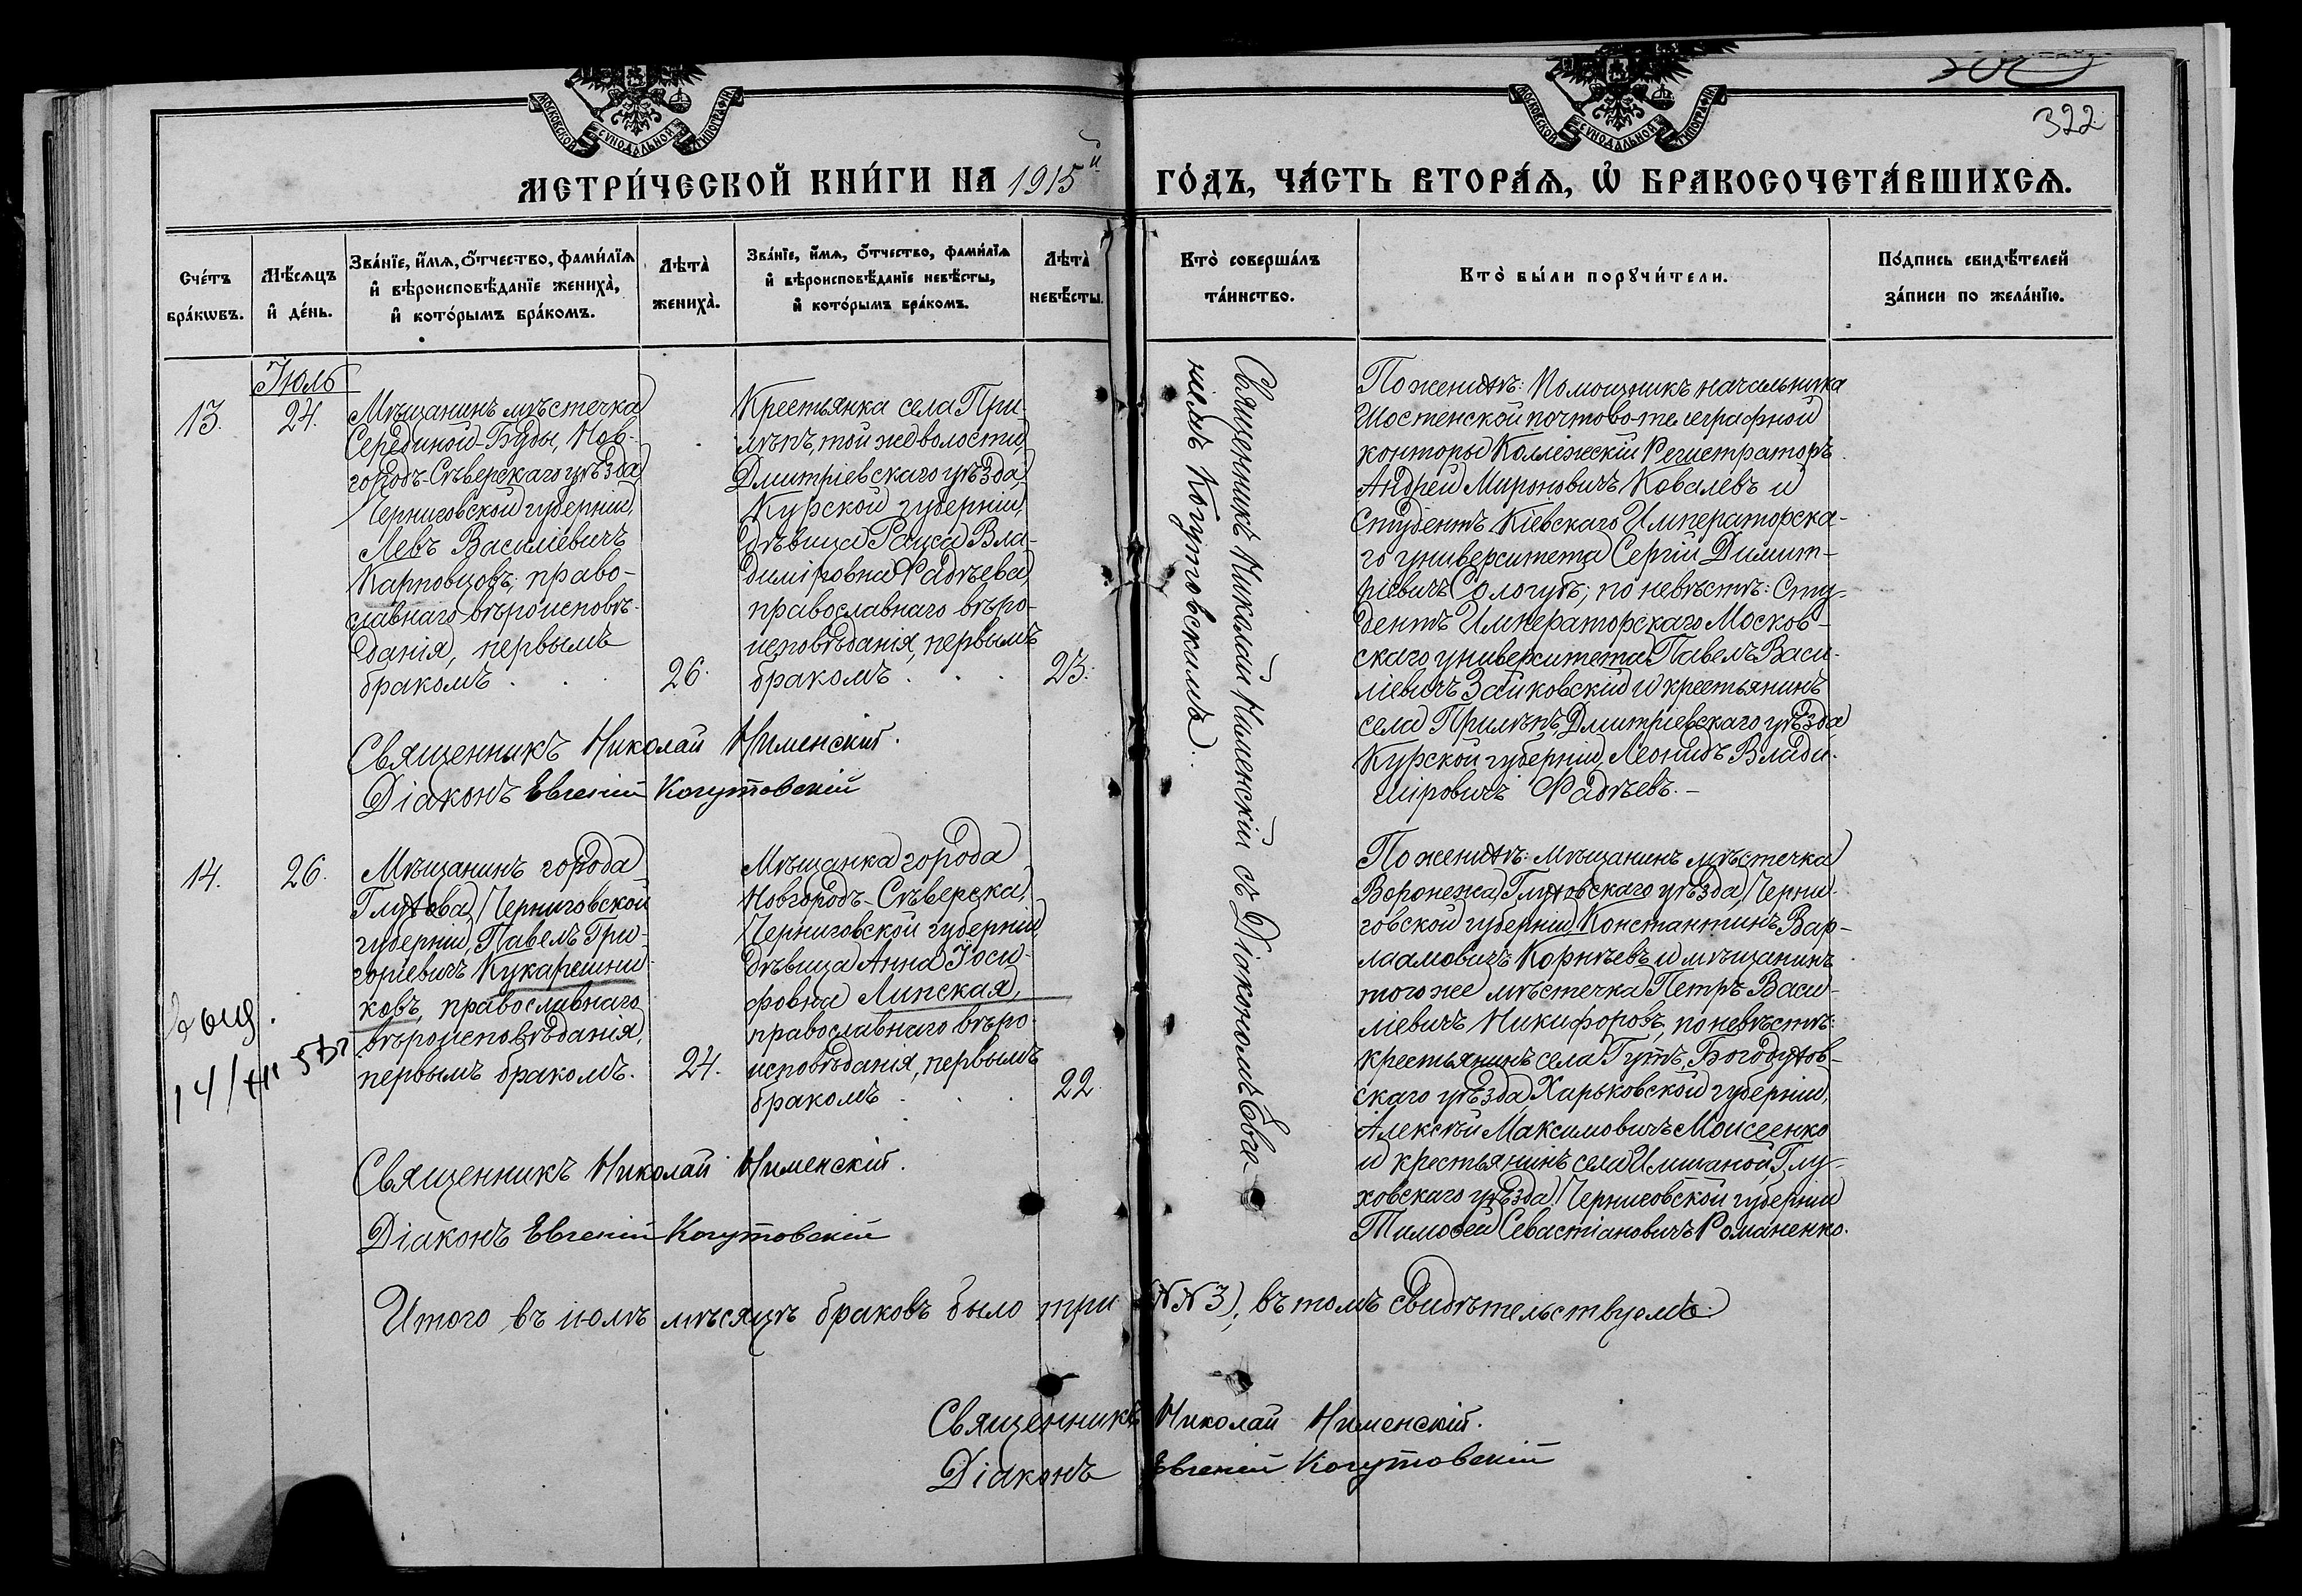 322
МОСКОВСКОЙ СУНОДАЛЬНОЙ ТИПОГРАФІИ
МОСКОВСКОЙ СУНОДАЛЬНОЙ ТИПОГРАФІИ
МЕТРИ́ЧЕСКОЙ КНИ́ГИ НА 1915й ГО́ДЪ, ЧА́СТЬ ВТОРА́Ѧ, Ѡ҆ БРАКОСОЧЕТА́ВШИХСѦ.
Сче́тъ бра́кѡвъ.
Мѣ́сѧцъ и҆ де́нь.
Зва́нїе, и҆́мѧ, ѻ҆́тчество, фами́лїѧ и҆ вѣроисповѣ́данїе жениха̀, и҆ кото́рымъ бра́комъ.
Лѣта̀ жениха̀.
Зва́нїе, и҆́мѧ, ѻ҆́тчество, фами́лїѧ и҆ вѣроисповѣ́данїе невѣ́сты, и҆ кото́рымъ бра́комъ.
Лѣта̀ невѣ́сты.
Кто̀ соверша́лъ та́инство.
Кто̀ бы́ли порꙋчи́тели.
По́дпись свидѣ́телей за́писи по жела́нїю.
Іюль
13. 24.
Мѣщанинъ мѣстечка
Серединой-Буды, Нов-
городъ-Сѣверскаго уѣзда
Черниговской губерніи,
Левъ Василіевичъ
Карповцовъ; право-
славнаго вѣроисповѣ-
данія, первымъ
бракомъ . . . 26.
Крестьянка села При-
лѣпъ, той же волости,
Дмитріевскаго уѣзда,
Курской губерніи,
дѣвица Раиса Вла-
диміровна Фадѣева,
православнаго вѣро-
исповѣданія, первымъ
бракомъ . . . 23.
Священникъ Николай Нименскій съ Діакономъ Евге-
ніемъ Когутовскимъ.
По женихѣ: Помощникъ начальника
Шостенской почтово-телеграфной
конторы Коллежскій Регистраторъ
Андрей Мироновичъ Ковалевъ и
Студентъ Кіевскаго Императорска-
го университета Сергій Димит-
ріевичъ Сологубъ; по невѣстѣ: Сту-
дентъ Императорскаго Москов-
скаго университета Павелъ Васи-
ліевичъ Зайковскій и крестьянинъ
села Прилѣпъ, Дмитріевскаго уѣзда
Курской губерніи, Леонидъ Влади-
міровичъ Фадѣевъ.-
Священникъ Николай Нименскій.
Діаконъ Евгеній Когутовскій
14. 26.
Мѣщанинъ города
Глухова, Черниговской
губерніи, Павелъ Гри-
горіевичъ Кукарешни-
ковъ, православнаго
вѣроисповѣданія,
первымъ бракомъ. 24.
Мѣщанка города
Новгородъ-Сѣверска,
Черниговской губерніи,
дѣвица Анна Іоси-
фовна Липская,
православнаго вѣро-
исповѣданія, первымъ
бракомъ . . . 22
По женихѣ: мѣщанинъ мѣстечка
Воронежа, Глуховскаго уѣзда, Черни-
говской губерніи Константинъ Вар-
лаамовичъ Корнѣевъ и мѣщанинъ
того же мѣстечка Петръ Васи-
ліевичъ Никифоровъ, по невѣстѣ:
крестьянинъ села Гутъ, Богодухов-
скаго уѣзда Харьковской губерніи,
Алексѣй Максимовичъ Моисеенко
и крестьянинъ села Имшаной, Глу-
ховскаго уѣзда Черниговской губерніи
Тимофей Севастіановичъ Романенко.
Священникъ Николай Нименскій.
Діаконъ Евгеній Когутовскій
Итого въ іюлѣ мѣсяцѣ браковъ было три (№№ 3), въ томъ свидѣтельствуемъ:
Священникъ Николай Нименскій.
Діаконъ Евгеній Когутовскій